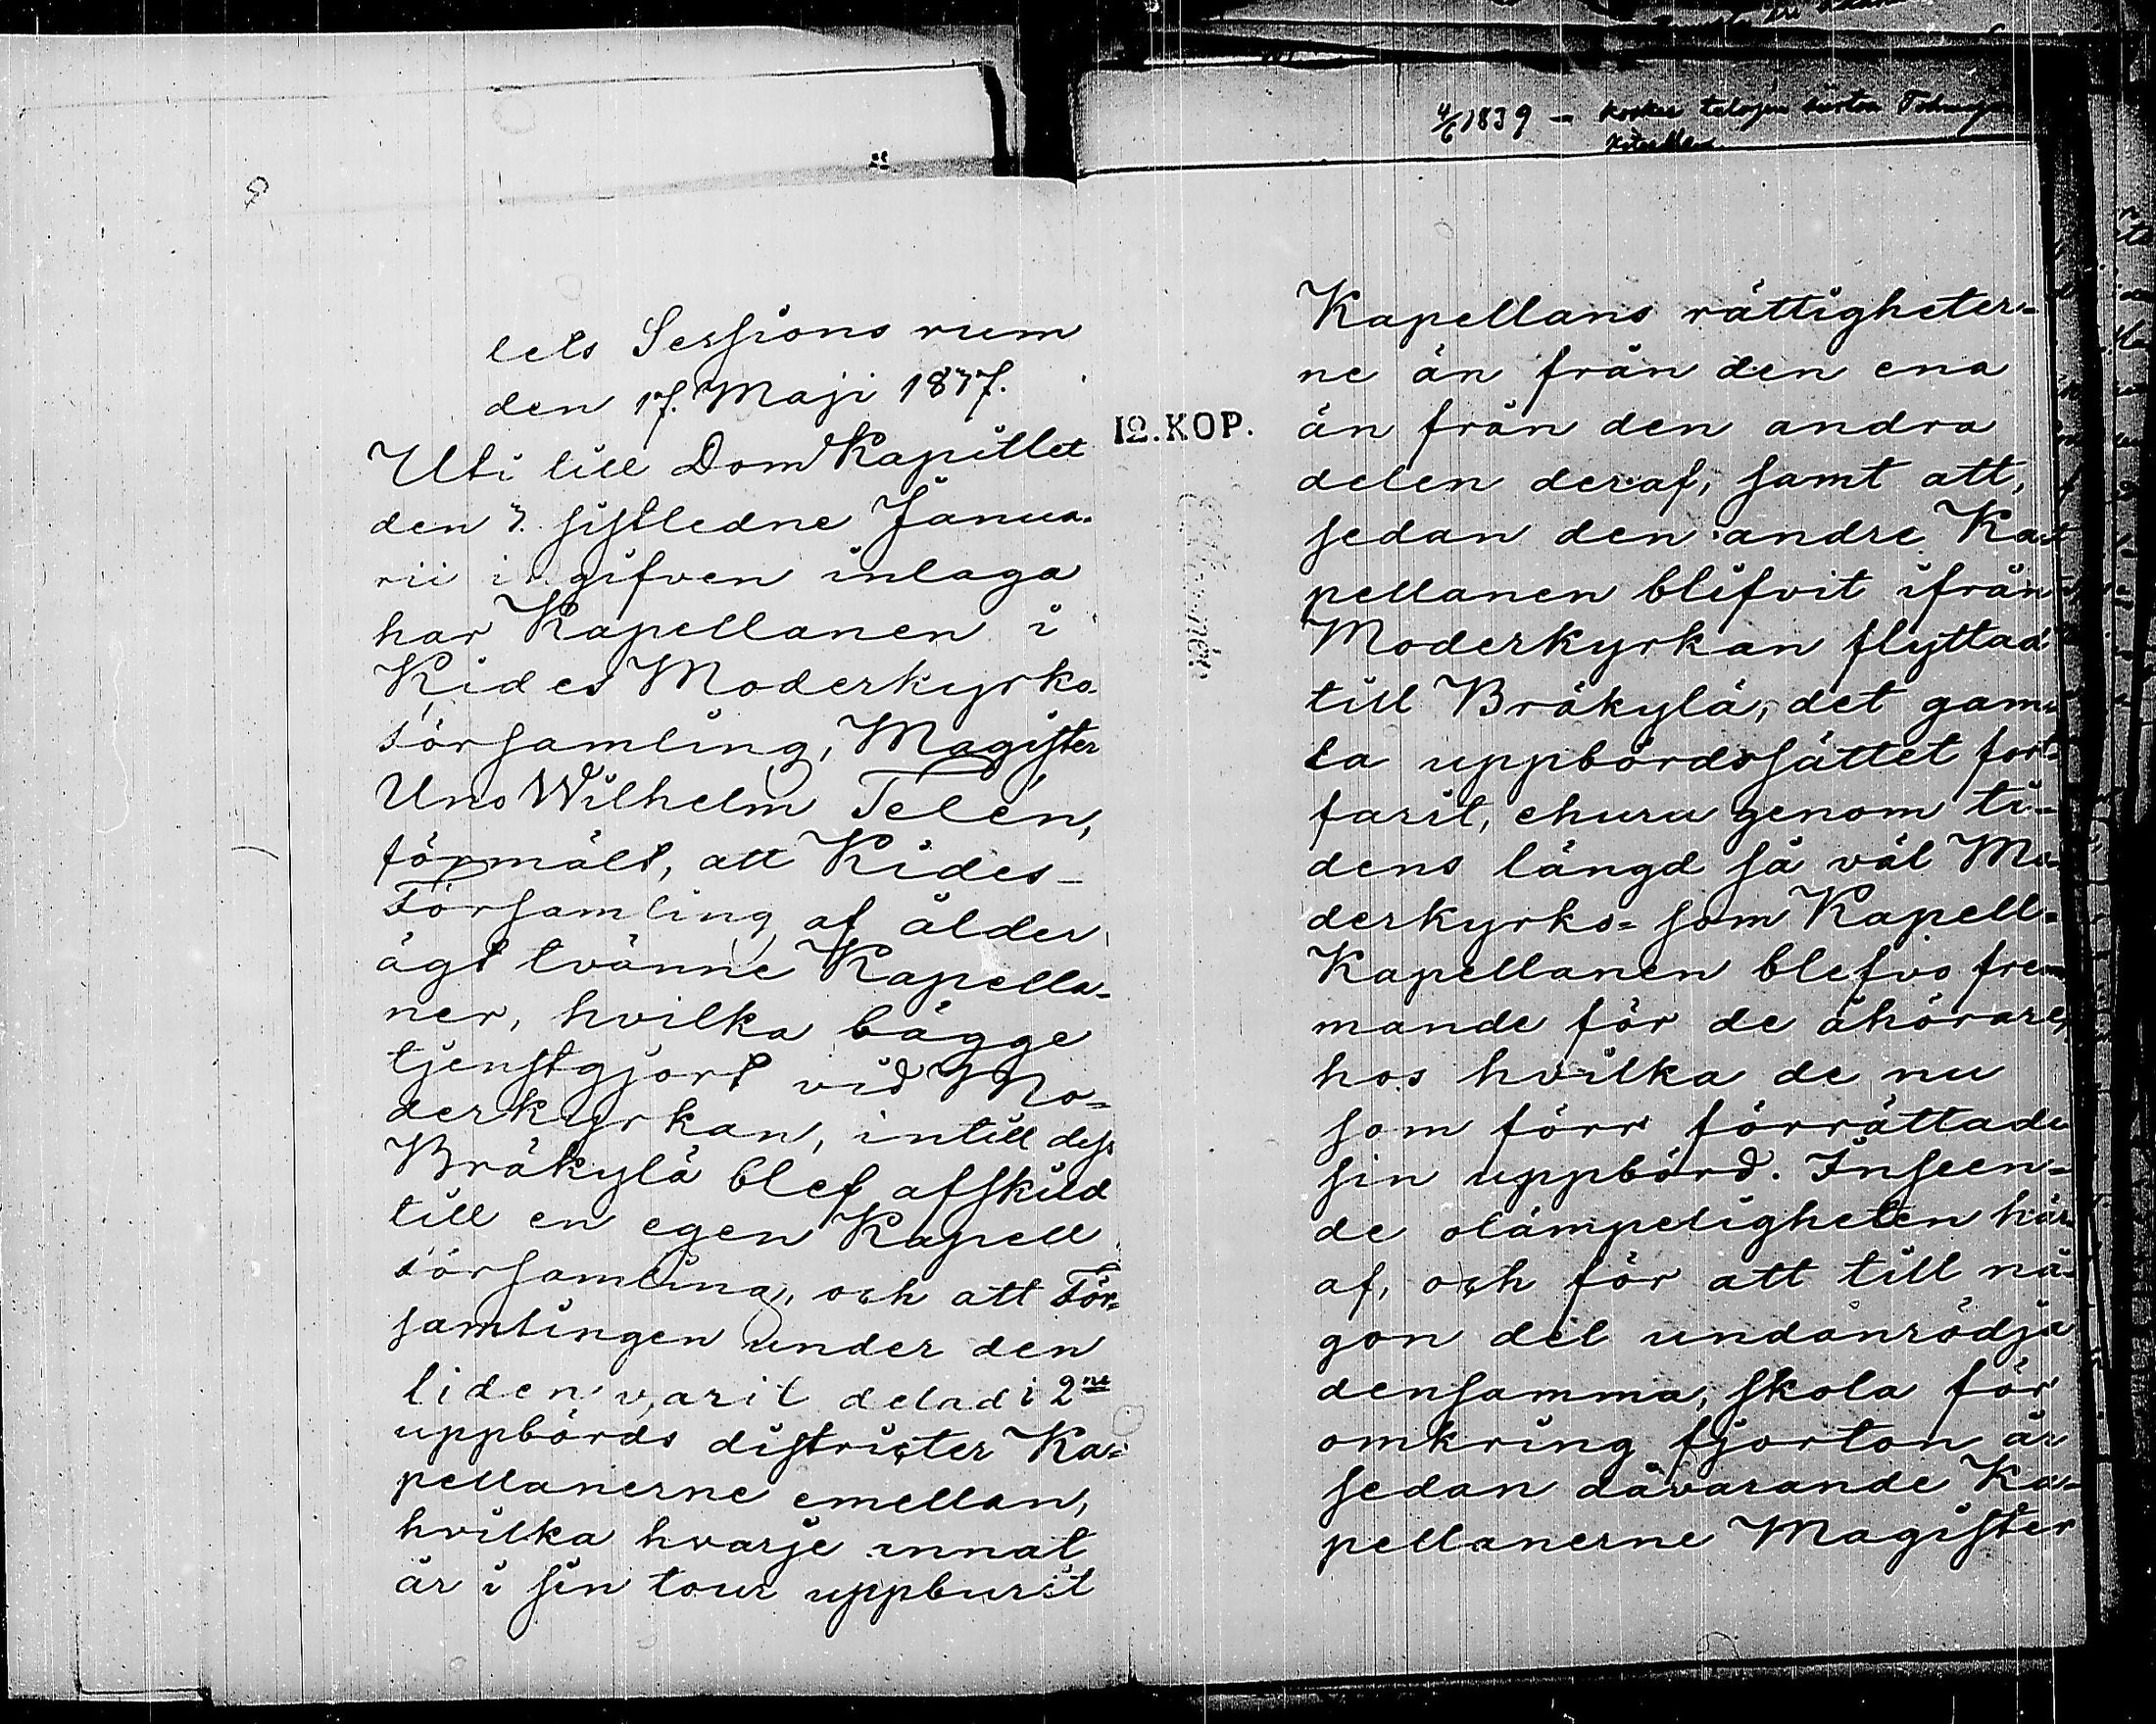 4/6 1839 –
lets Sessions rum
den 17. Maji 1837.
Uti till DomKapitlet
den 7. sistledne Janua-
rii ingifven inlaga
har Kapellanen i
Kides Moderkyrko
församling, Magister
Uno Wilhelm Telén,
förmält, att Kides-
Församling af ålder
ägt tvänne Kapella-
ner, hvilka bägge
tjenstgjort vid Mo-
derkyrkan, intill dess
Bräkylä blef afskild
till en egen Kapell
församling, och att För-
samlingen under den
tiden varit delad i 2ne
uppbörds districter Ka-
pellanerne emellan,
hvilka hvarje annat
år i sin tour uppburit
12.KOP.
Kapellans rättigheter-
ne än från den ena
än från den andra
delen deraf, samt att,
sedan den andre Ka-
pellanen blifvit ifrån
Moderkyrkan flyttad
till Bräkylä, det gam-
la uppbördssättet fort-
farit, ehuru genom ti-
dens längd så väl Mo-
derkyrko- som Kapell-
Kapellanen blefvo frem-
mande för de åhörare,
hos hvilka de nu
som förr förrättade
sin uppbörd. Inseen-
de olämpeligheten här-
af, och för att till nå-
gon del undanrödja
densamma, skola för
omkring fjorton år
sedan dåvarande Ka-
pellanerne Magister